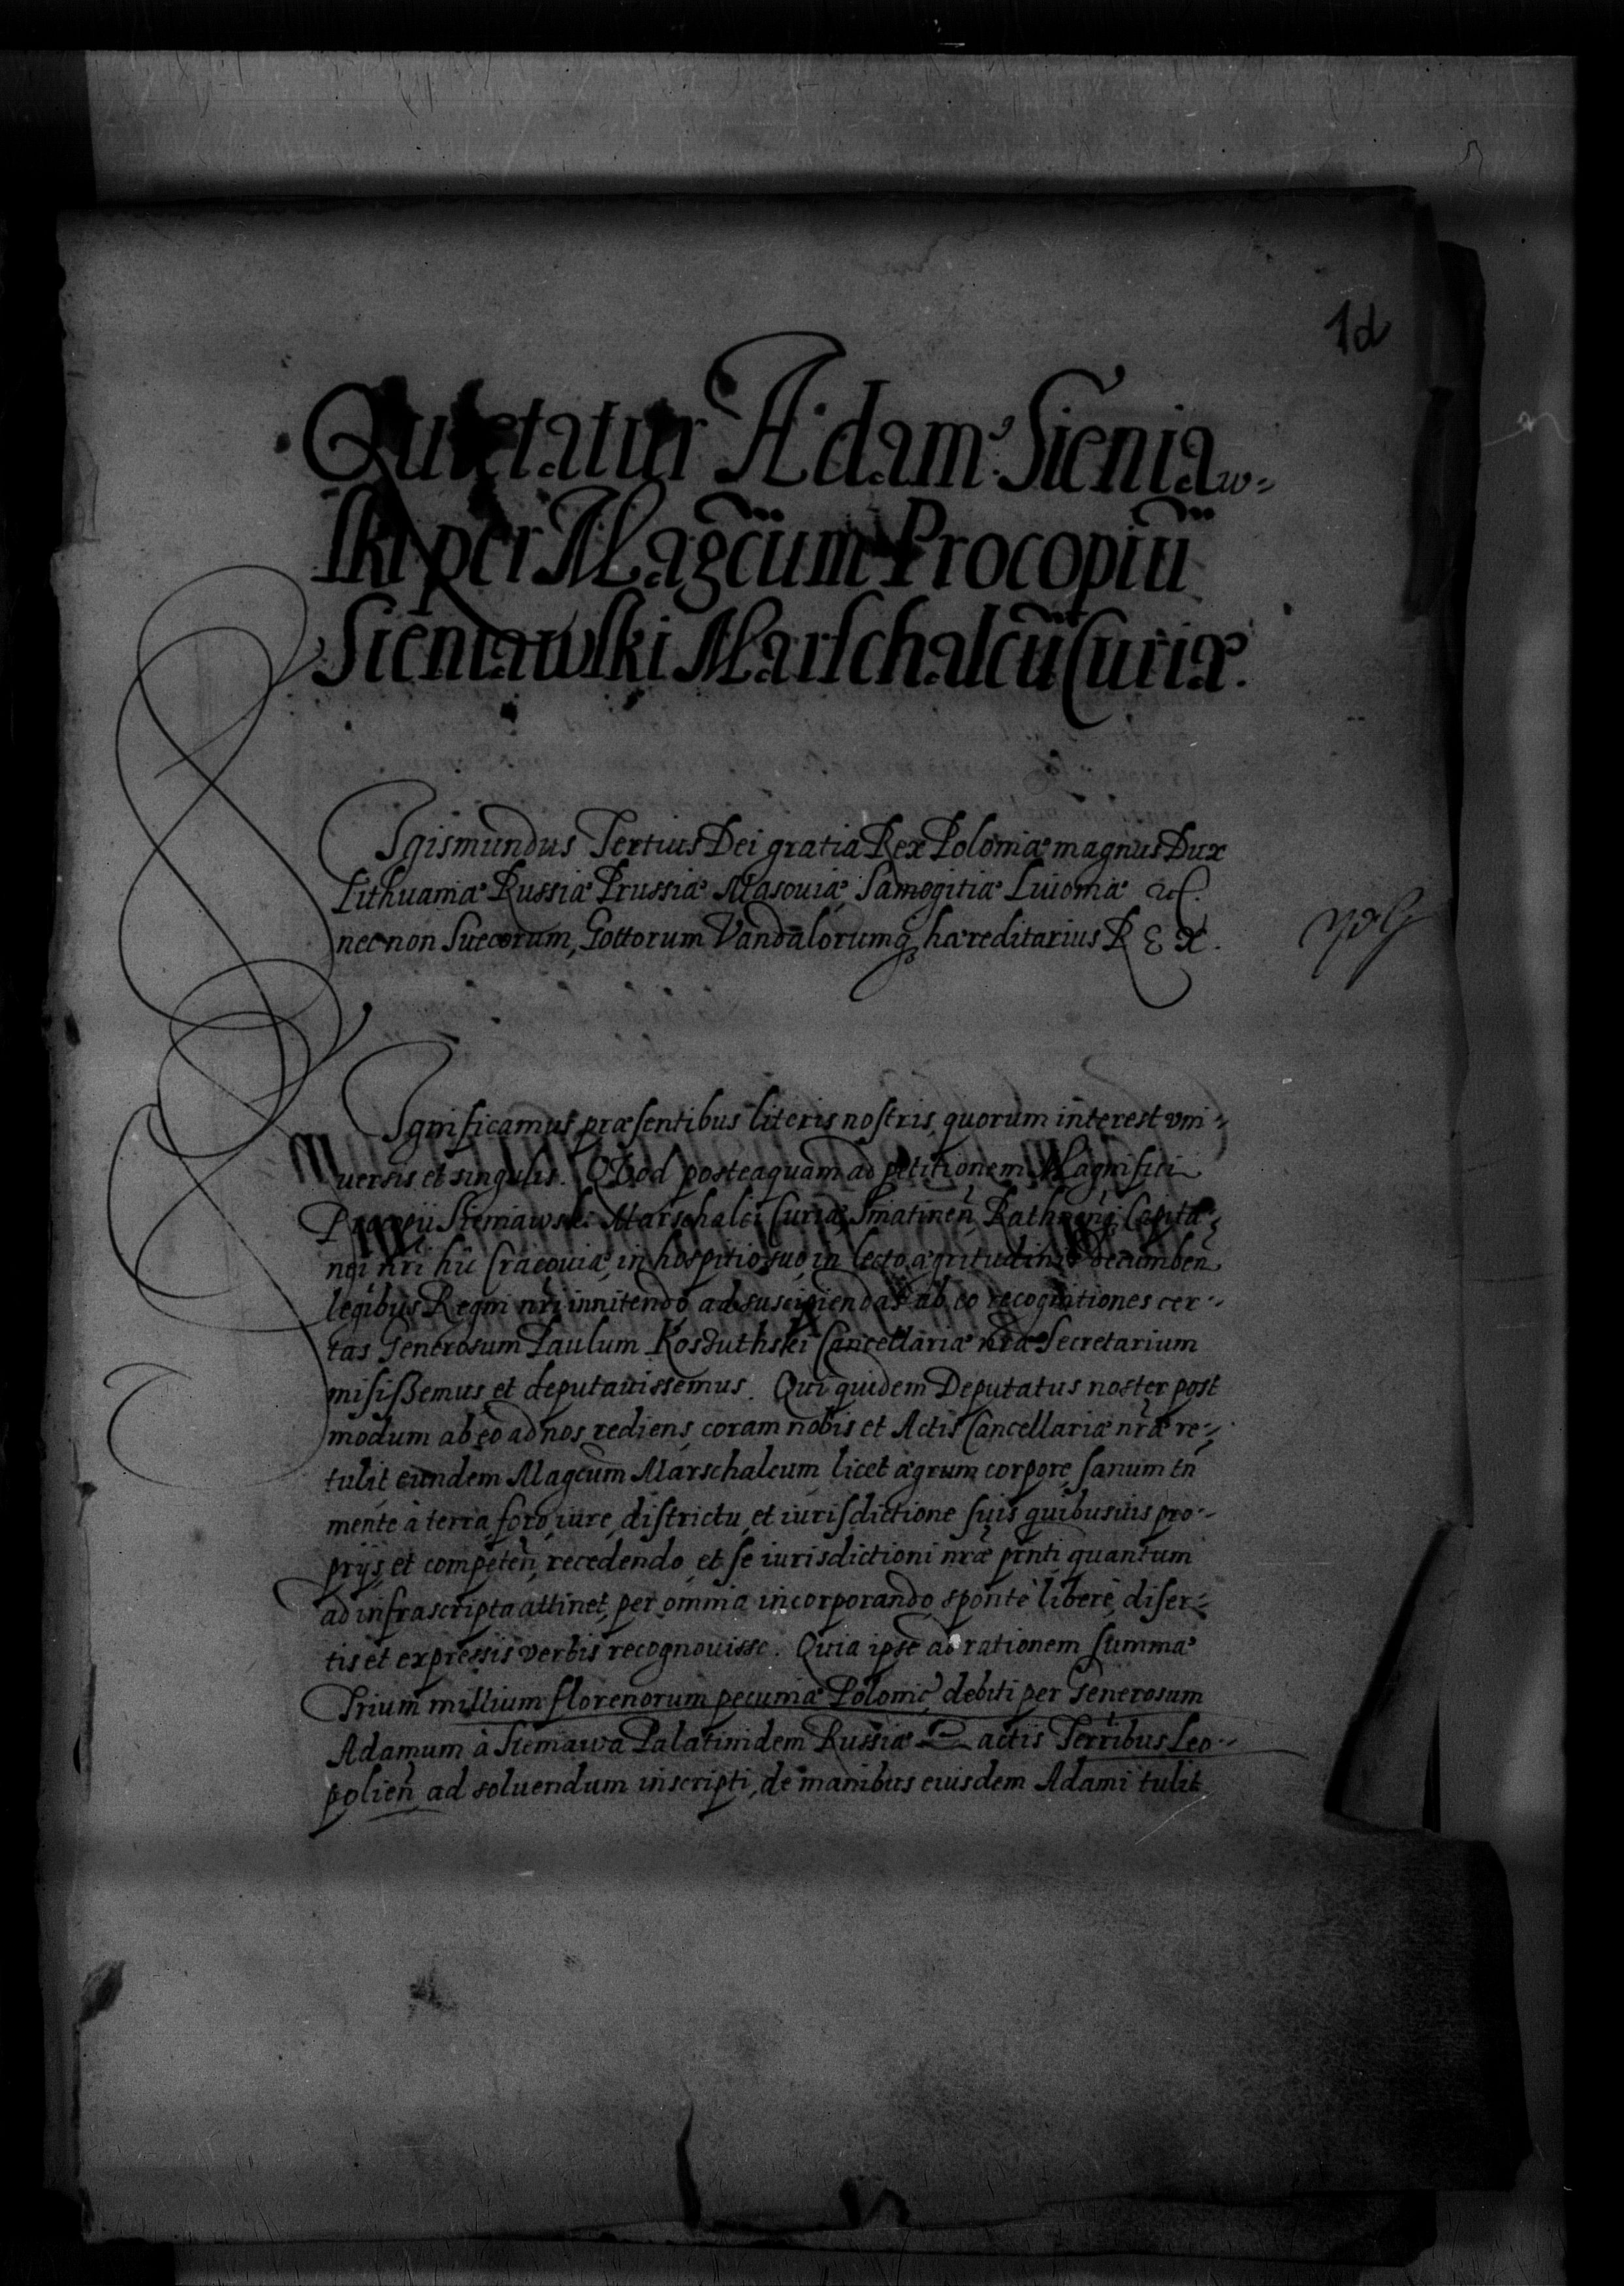 1d
Quietatur Adam Sieniaw=
ski per Magcum Procopiũ
Sieniawski Marschalcũ Curiæ.
Sigismundus Tertius Dei gratia Rex Poloniæ magnus Dux
Lithuaniæ Russiæ Prussiæ Masouiæ, Samogitiæ Liuoniæ etc.
necnon Suecorum, Gottorum Vandalorumq hæreditarius REX.
Significamus præsentibus literis nostris, quorum interest vni-
uersis et singulis. Quod posteaquam ad petitionem Magnifici
Procopii Sieniawski Marschalci Curiæ, Sniatinen̄, Rathnen̄, Capita-
nei nri hic Cracouiæ, in hospitio suo, in lecto ægritudinis decumben̄
legibus Regni nri innitendo ad suscipiendas ab eo recognitiones cer-
tas Generosum Paulum Koszuthski Cancellariæ nræ Secretarium
misißemus et deputauissemus. Qui quidem Deputatus noster post
modum ab eo ad nos rediens, coram nobis et Actis Cancellariæ nræ re-
tulit eundem Magcum Marschalcum licet ægrum corpore, sanum tñ
mente à terra foro, iure, districtu, et iurisdictione suis quibusuis pro-
prijs, et competen̄, recedendo, et se iurisdictioni nræ prñti quantum
ad infrascripta attinet, per omnia incorporando, sponte liberè, diser-
tis et expressis verbis recognouisse. Quia ipse ad rationem summæ
Trium millium florenorum pecuniæ Polonic̄, debiti per Generosum
Adamum à Sieniawa Palatinidem Russiæ actis Terribus Leo-
polien̄ ad soluendum inscripti, de manibus eiusdem Adami tulit